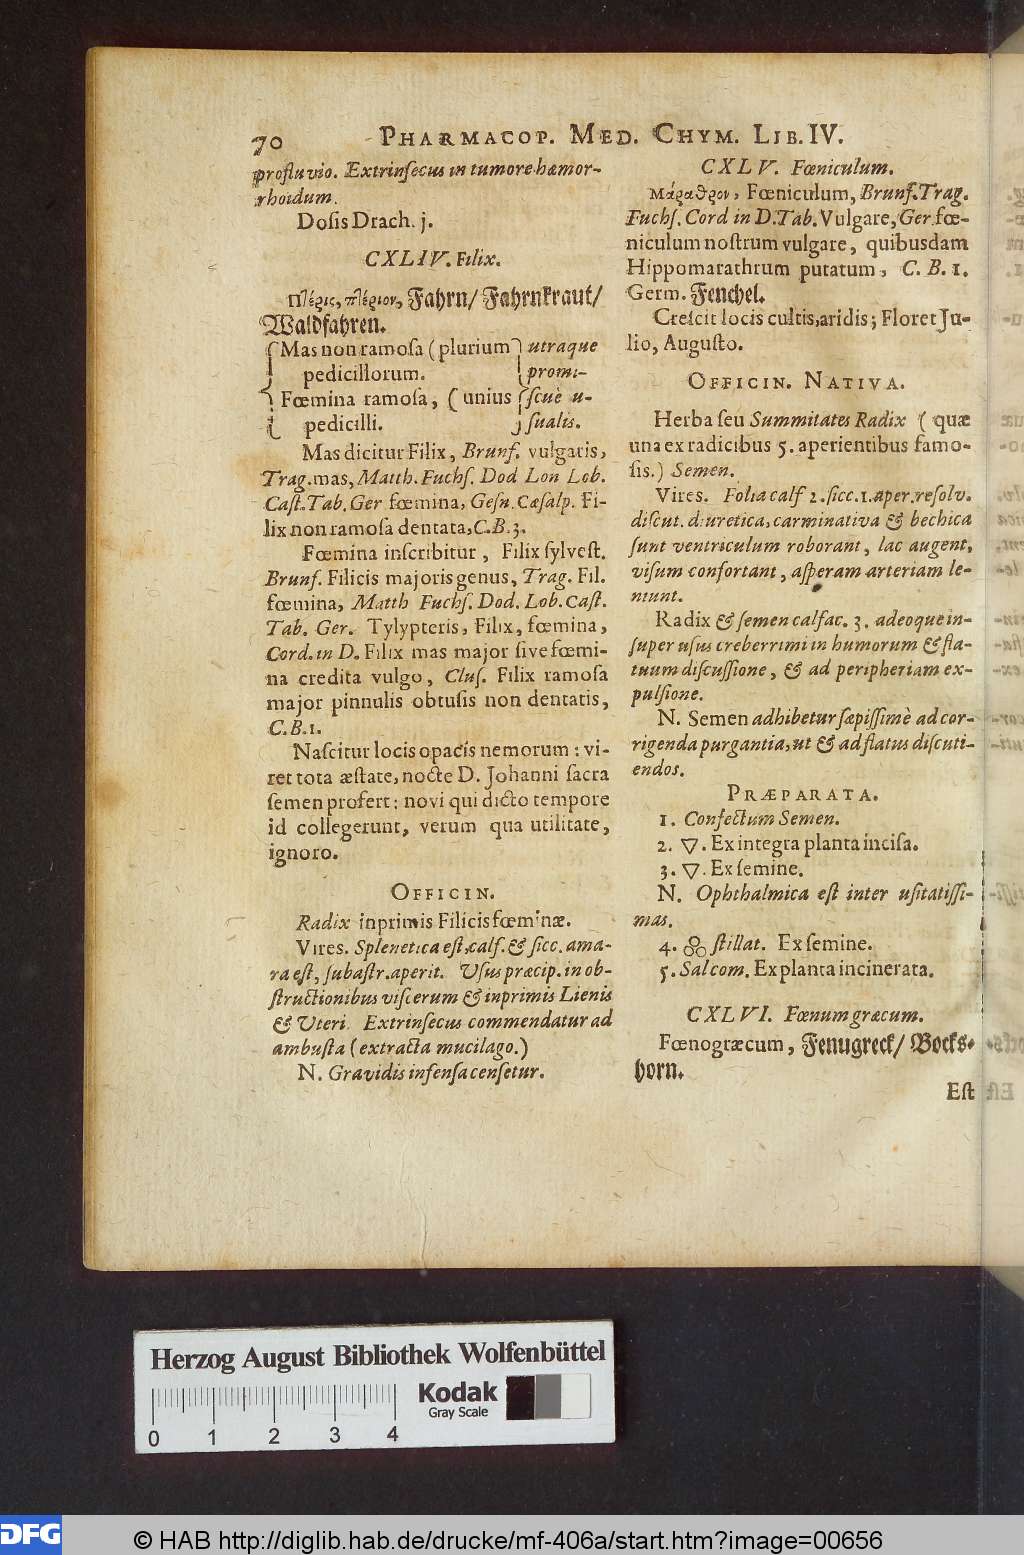 70 PHARMACOP. MED. CHYM. LIB. IV.
profluvio. Extrinſecus in tumore hæmor-
rhoidum.
Doſis Drach. j.
CXLIV. Filix.
Πλέρις, πλέριον, Fahrn/ Fahrnkraut/
Waldfahren.
Mas non ramoſa (plurium utraque
pedicillorum. promi-
Fœmina ramoſa, (unius ſcuè u-
pedicilli. ſualis.
Mas dicitur Filix, Brunf. vulgaris,
Trag. mas, Matth. Fuchſ. Dod Lon Lob.
Caſt. Tab. Ger fœmina, Geſn. Cæſalp. Fi-
lix non ramoſa dentata, C. B. 3.
Fœmina inſcribitur, Filix ſylveſt.
Brunf. Filicis majoris genus, Trag. Fil.
fœmina, Matth Fuchſ. Dod. Lob. Caſt.
Tab. Ger. Tylypteris, Filix, fœmina,
Cord. in D. Filix mas major ſive fœmi-
na credita vulgo, Cluſ. Filix ramoſa
major pinnulis obtuſis non dentatis,
C. B. 1.
Naſcitur locis opacis nemorum: vi-
ret tota æſtate, nocte D. Johanni ſacra
ſemen profert: novi qui dicto tempore
id collegerunt, verum qua utilitate,
ignoro.
OFFICIN.
Radix inprimis Filicis fœminæ.
Vires. Splenetica eſt, calf. & ſicc. ama-
ra eſt, ſubaſtr. aperit. Uſus præcip. in ob-
ſtructionibus viſcerum & inprimis Lienis
& Uteri. Extrinſecus commendatur ad
ambuſta (extracta mucilago.)
N. Gravidis infenſa cenſetur.
CXLV. Fœniculum.
Μάραθρον, Fœniculum, Brunf. Trag.
Fuchſ. Cord in D. Tab. Vulgare, Ger fœ-
niculum noſtrum vulgare, quibusdam
Hippomarathrum putatum, C. B. 1.
Germ. Fenchel.
Creſcit locis cultis, aridis; Floret Ju-
lio, Auguſto.
OFFICIN. NATIVA.
Herba ſeu Summitates Radix (quæ
una ex radicibus 5. aperientibus famo-
ſis.) Semen.
Vires. Folia calf 2. ſicc. 1. aper. reſolv.
diſcut. diuretica, carminativa & bechica
ſunt ventriculum roborant, lac augent,
viſum confortant, aſperam arteriam le-
niunt.
Radix & ſemen calfac. 3. adeoque in-
ſuper uſus creberrimi in humorum & fla-
tuum diſcuſſione, & ad peripheriam ex-
pulſione.
N. Semen adhibetur ſæpiſſimè ad cor-
rigenda purgantia, ut & ad flatus diſcuti-
endos.
PRÆPARATA.
1. Confectum Semen.
2. ▽. Ex integra planta inciſa.
3. ▽. Ex ſemine.
N. Ophthalmica eſt inter uſitatiſſi-
mas.
4. ſtillat. Ex ſemine.
5. Sal com. Ex planta incinerata.
CXLVI. Fœnum græcum.
Fœnogræcum, Fenugreck/ Bocks-
horn.
Eſt
Herzog August Bibliothek Wolfenbüttel
Kodak
Gray Scale
0 1 2 3 4
DFG
© HAB http://diglib.hab.de/drucke/mf-406a/start.htm?image=00656